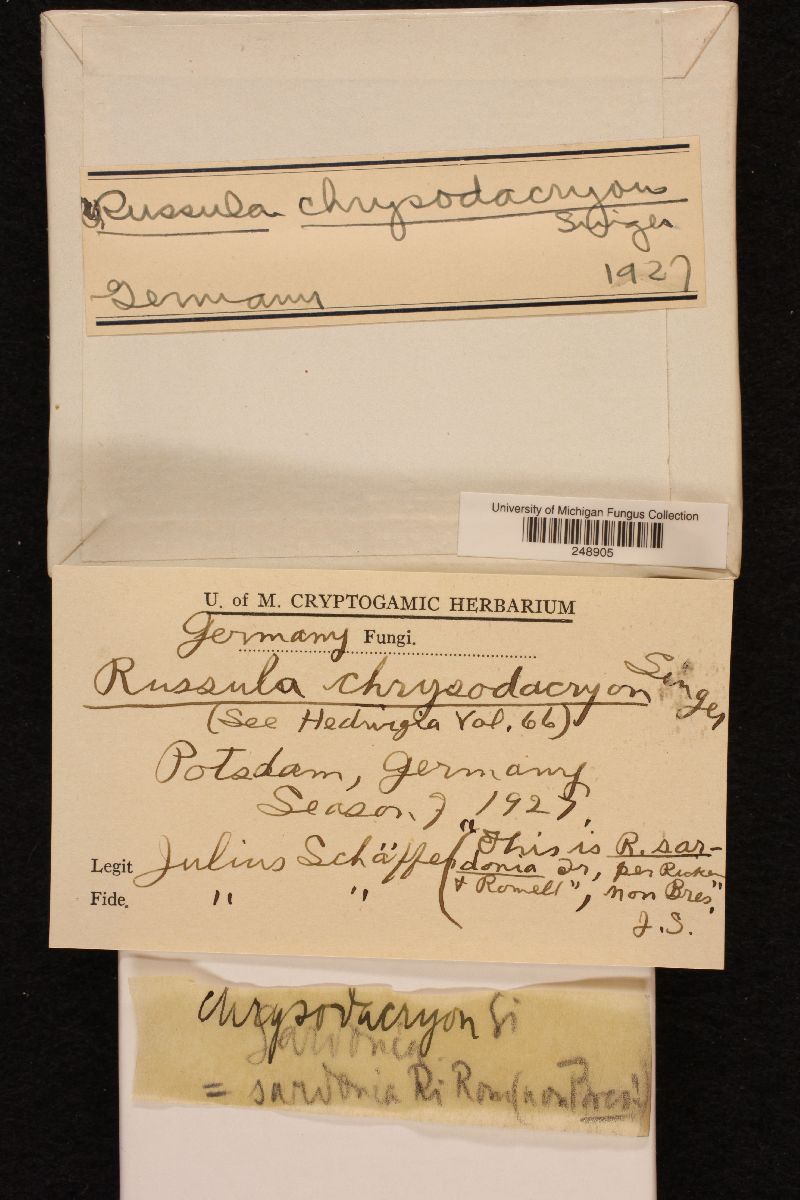 Russula chrysodacryon
Singer
Germany 1927
University of Michigan Fungus Collection
248905
U. of M. CRYPTOGAMIC HERBARIUM
Germany Fungi.
Russula chrysodacryon Singer
(See Hedwigia Vol. 66)
Potsdam, Germany
Season of 1927.
Legit Julius Schäffer ("This is R. sar-
donia Fr, per Ricken
& Romell", non Bres".
Fide. " "
J.S.
chrysodacryon Si
Sardonia
= sardonia Ri Rom (non Bres)